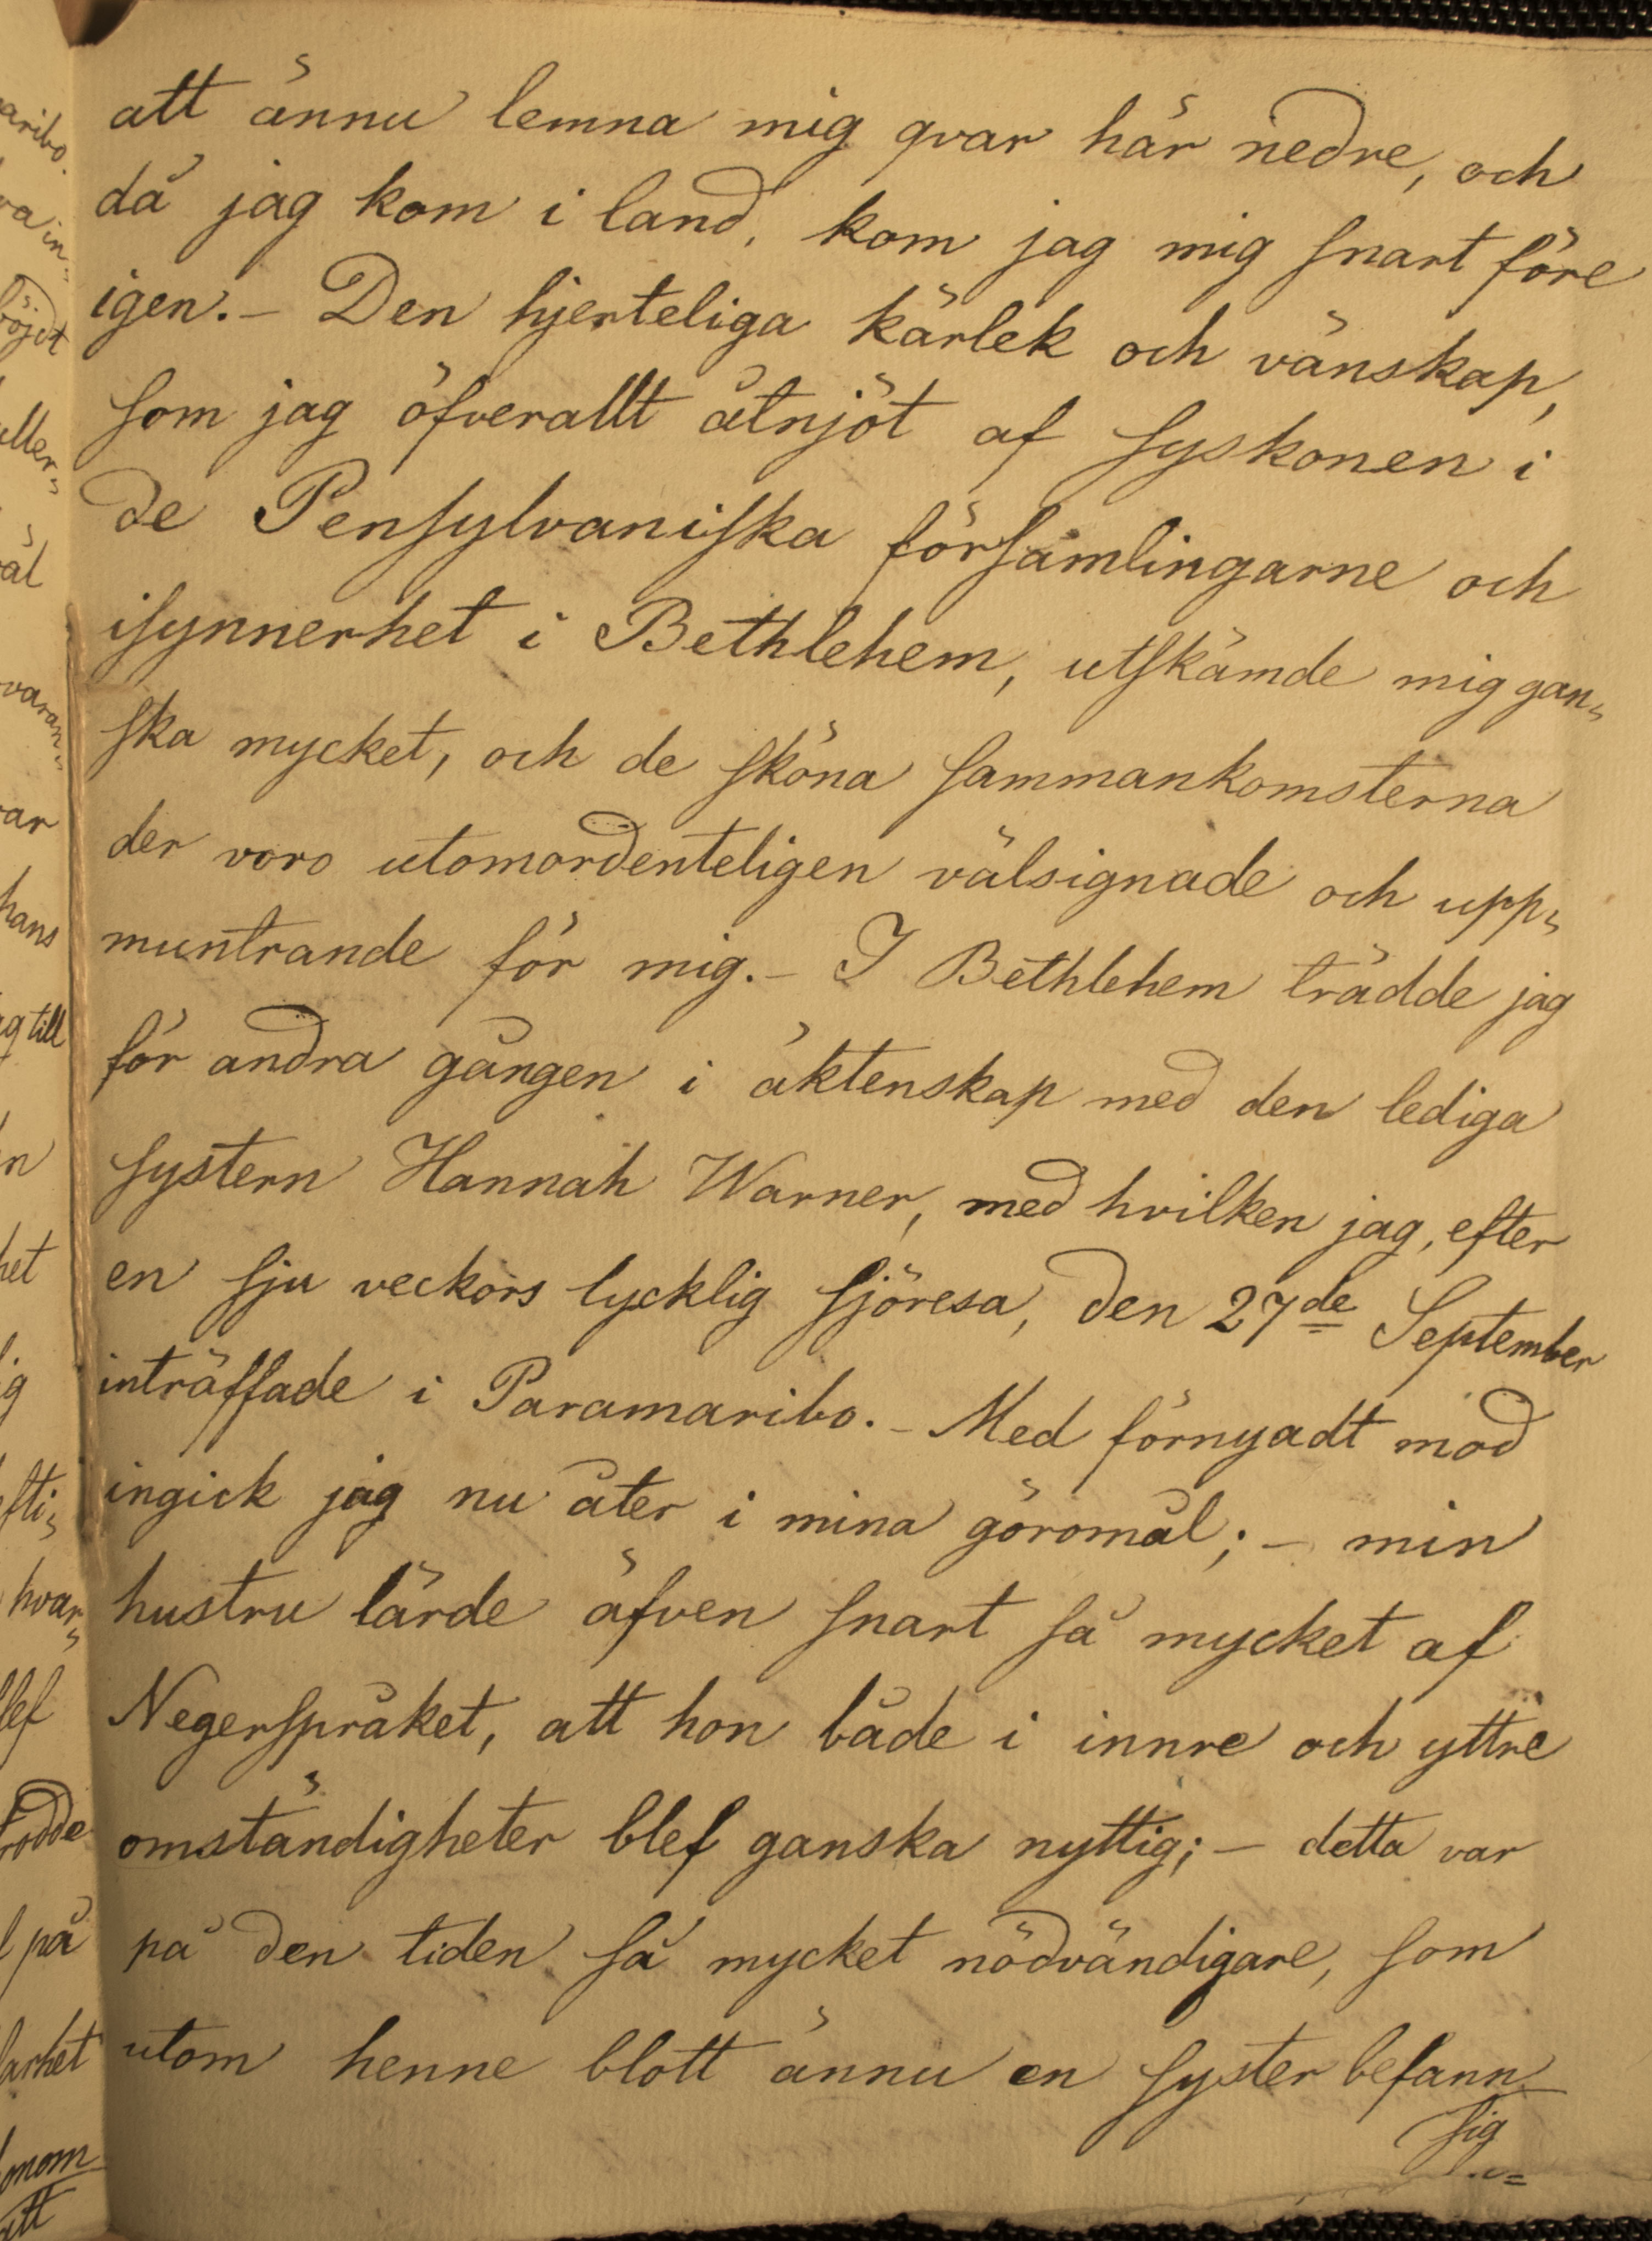 att ännu lemna mig qvar här nedre, och
då jag kom i land, kom jag mig snart före
igen. – Den hjerteliga kärlek och vänskap,
som jag öfverallt åtnjöt af syskonen i
de Pensylvaniska församlingarne och
isynnerhet i Bethlehem, utskämde mig gan„
ska mycket, och de sköna sammankomsterna
der voro utomordenteligen välsignade och upp„
muntrande för mig. – I Bethlehem trädde jag
för andra gången i äktenskap med den lediga
systern Hannah Warner, med hvilken jag, efter
en sju veckors lycklig sjöresa, den 27de September
inträffade i Paramaribo. – Med förnyadt mod
ingick jag nu åter i mina göromål; – min
hustru lärde äfven snart så mycket af
Negerspråket, att hon både i innre och yttre
omständigheter blef ganska nyttig; – detta var
på den tiden så mycket nödvändigare, som
utom henne blott ännu en syster befann
sig